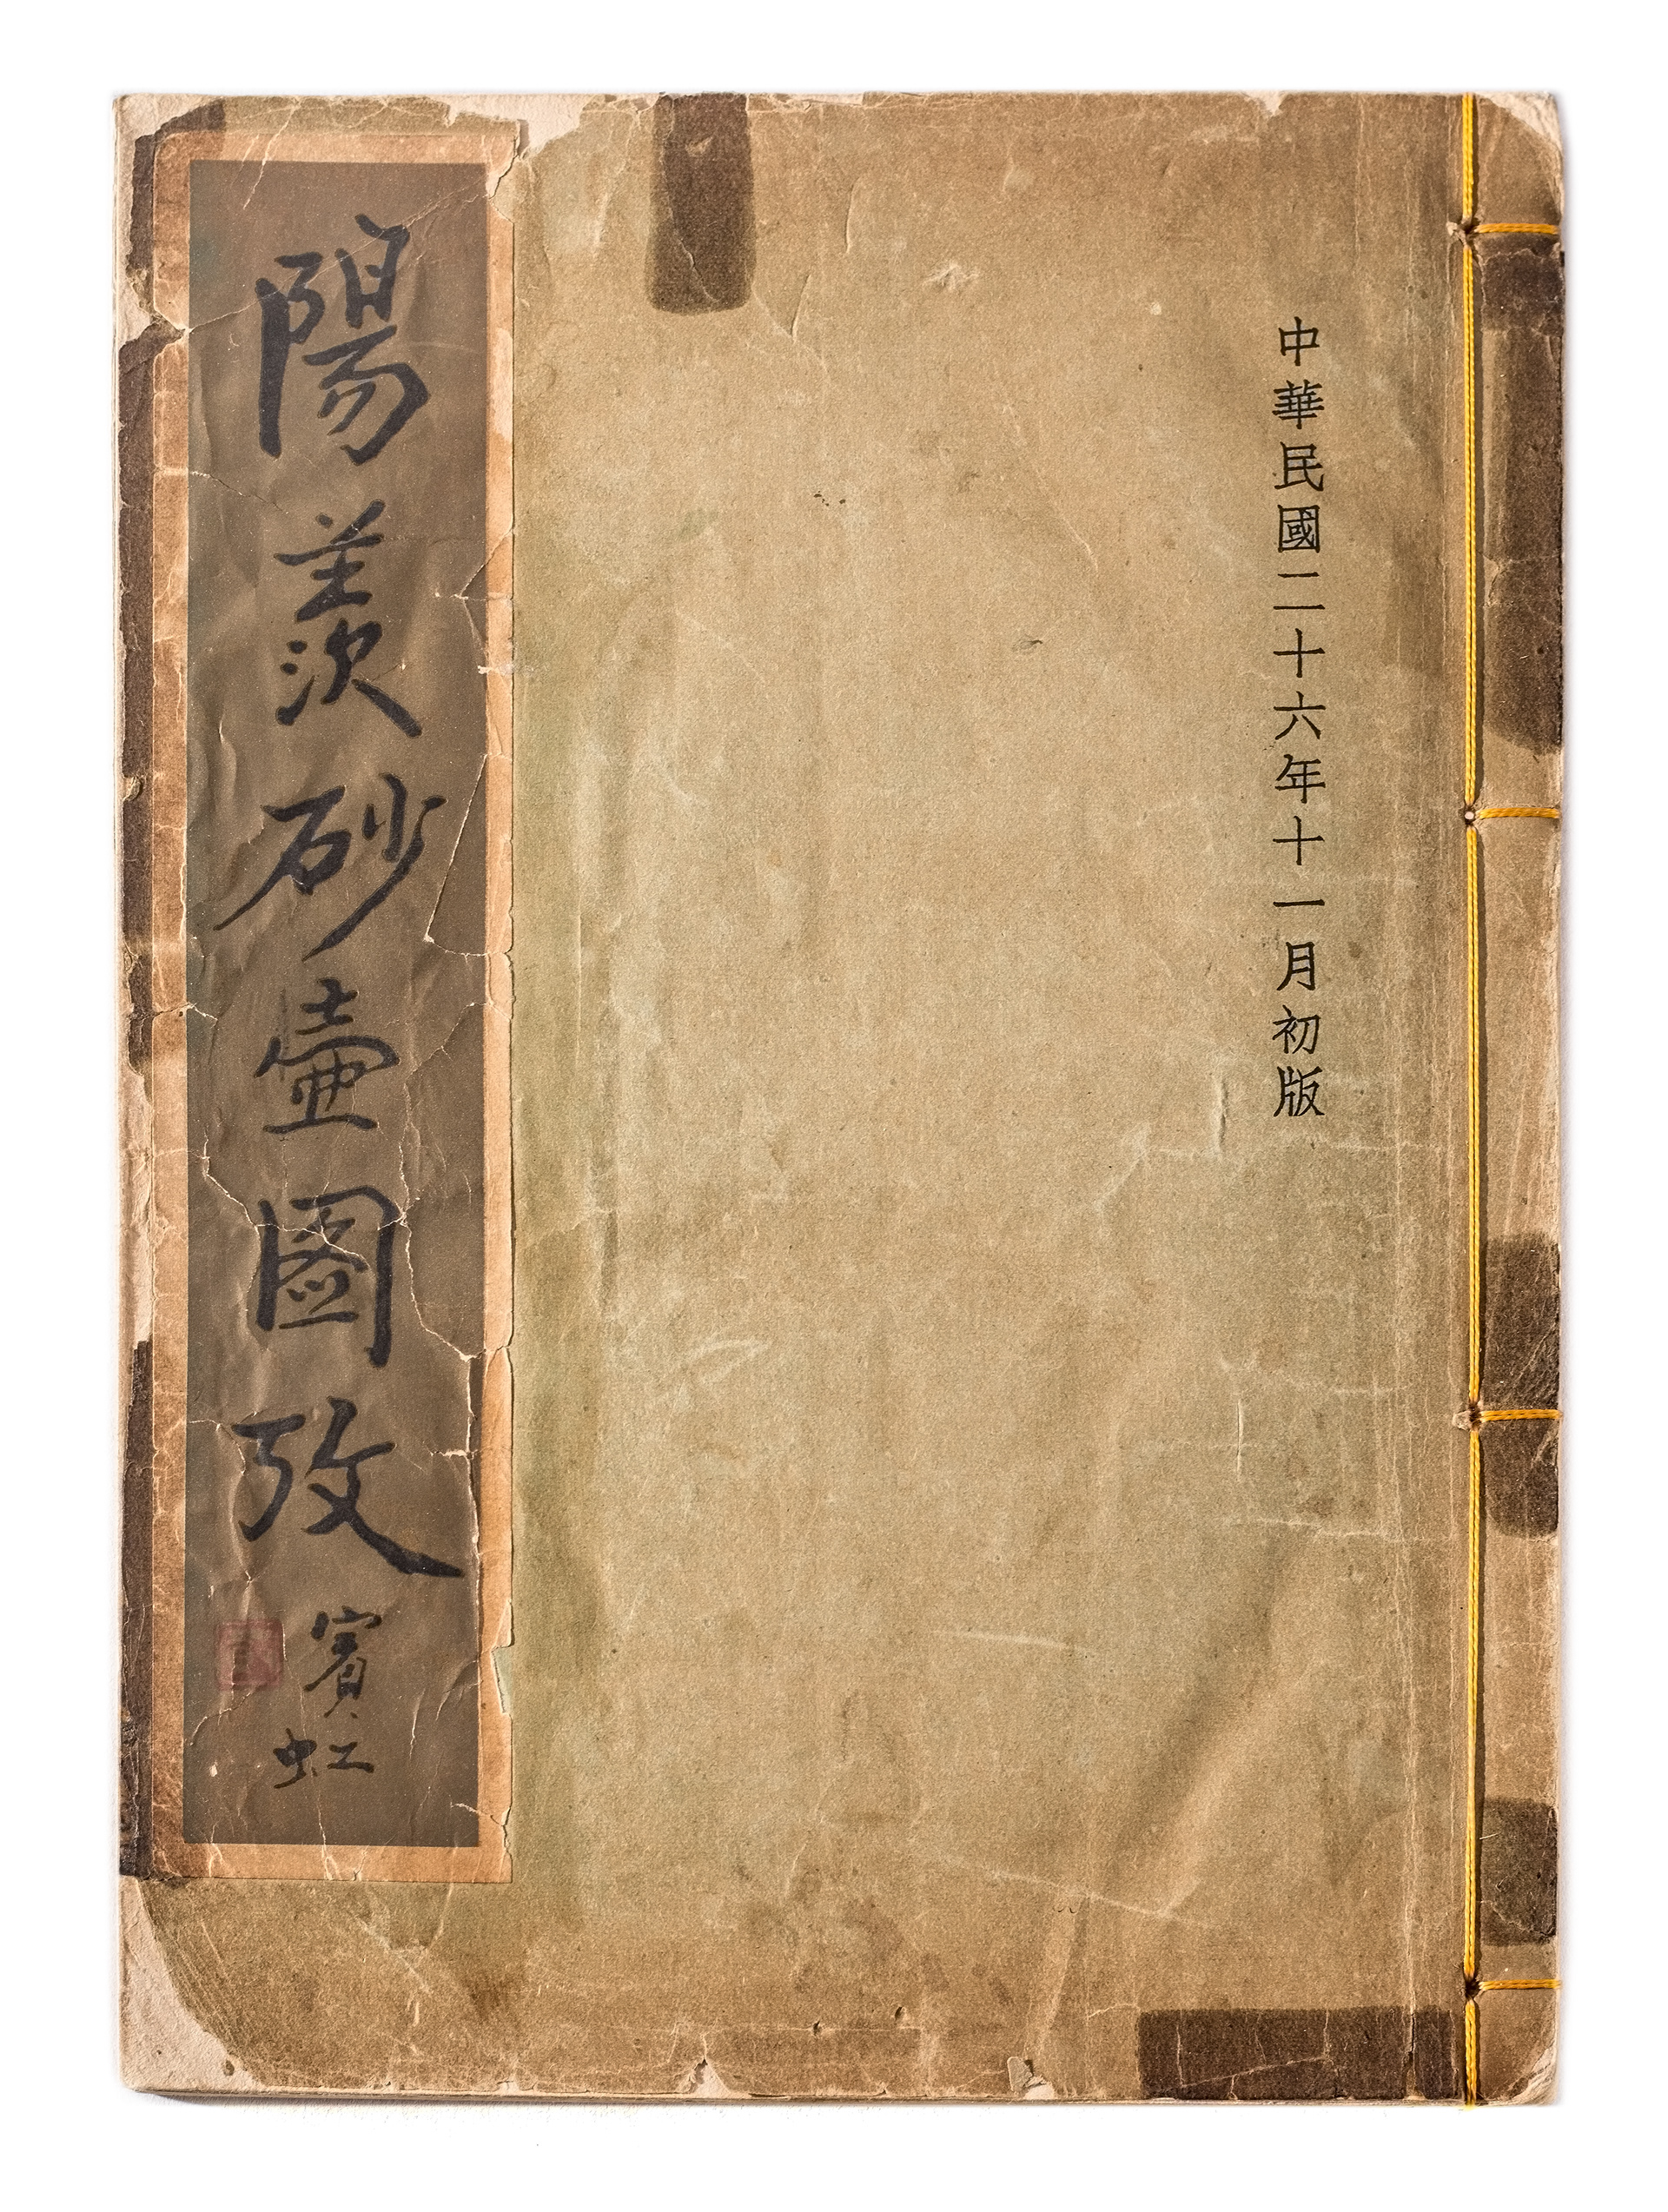 中華民國二十六年十一月初版
陽羨砂壺圖攷
賓虹